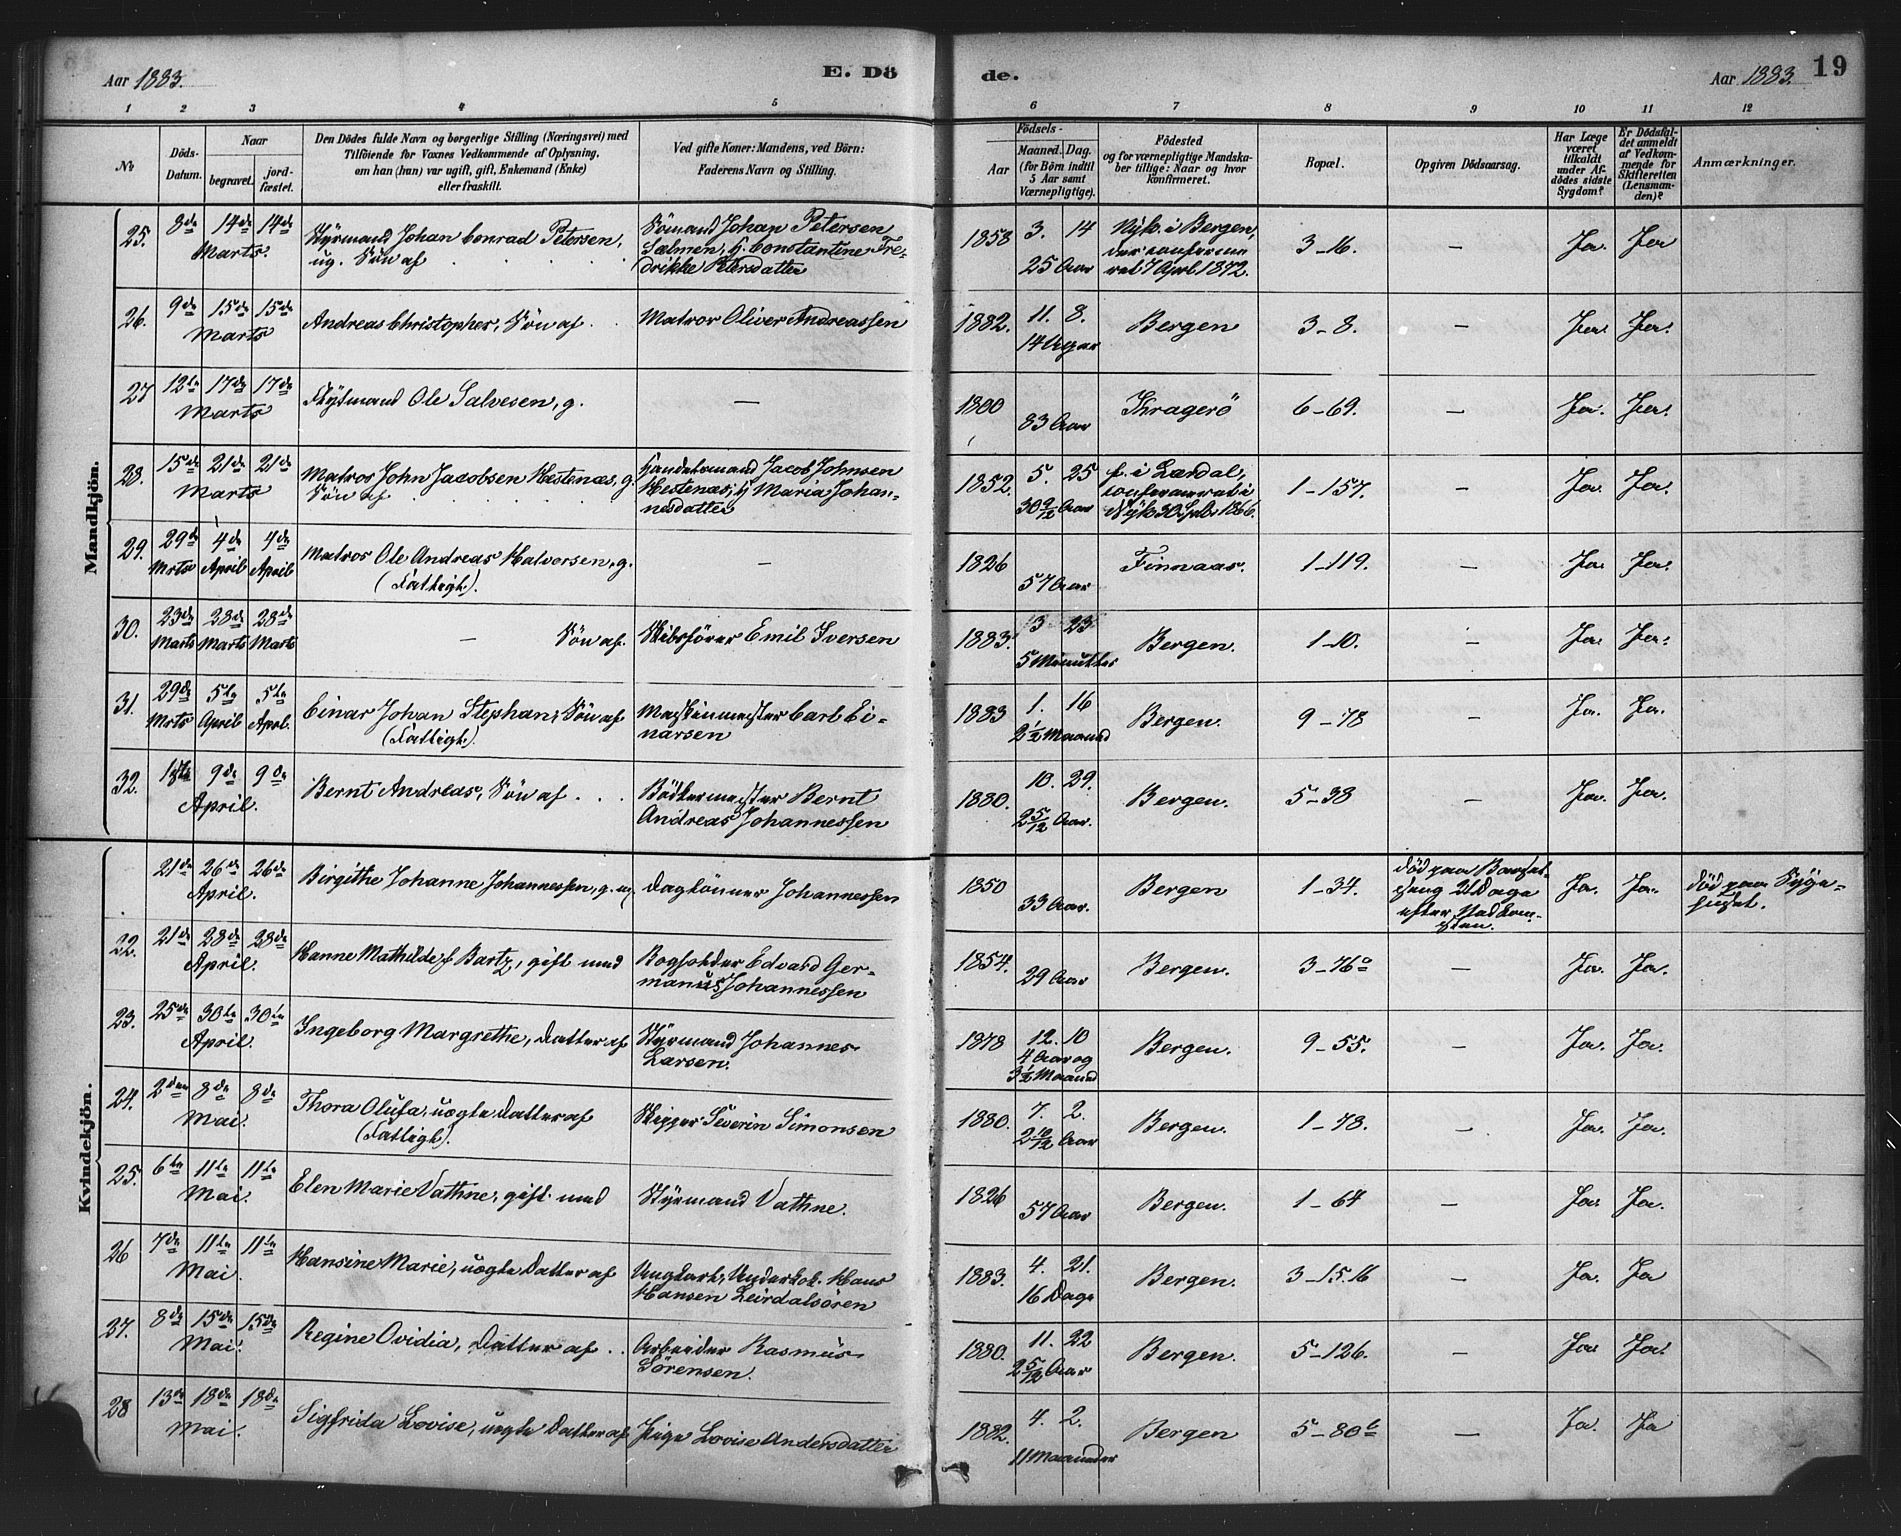 Aar 1883.
E. Dö
de.
Aar 1883.
19
1 2 3 4 5 6 7 8 9 10 11 12
No
Döds-Datum.
Naar
begravet.
jord-fæstet.
Den Dödes fulde Navn og borgerlige Stilling (Næringsvei) med
Tilföiende for Voxnes Vedkommende af Oplysning,
om han (hun) var ugift, gift, Enkemand (Enke)
eller fraskilt.
Ved gifte Koner: Mandens, ved Börn:
Faderens Navn og Stilling.
Födsels-
Aar
Maaned. Dag.
(for Börn indtil
5 Aar samt
Værnepligtige).
Födested
og for værnepligtige Mandska-
ber tillige: Naar og hvor
konfirmeret.
Bopæl.
Opgiven Dödsaarsag.
Har Læge
været
tilkaldt
under Af-
dödes sidste
Sygdom?
Er Dödsfal-
det anmeldt
af Vedkom-
mende for
Skifteretten
(Lensman-
den)?
Anmærkninger.
Mandkjön.
25. 8de 14de 14de Marts. Styrmand Johan Conrad Petersen, ug. Sön af Sömand Johan Petersen Sælmen, H. Constantine Fredrikke Petersdatter 1858 3. 14 25 Aar Nyk. i Bergen, der confirmeret 7 April 1872. 3-16. — Ja. Ja
26. 9de 15de 15de Marts Andreas Christopher, Sön af Matros Oliver Andreassen 1882. 11. 8. Bergen 3-8. — Ja. Ja.
27 12te 17de 17de Marts Ole Salvesen, g. — 1800 83 Aar Kragerö 6-69. — Ja. Ja.
28. 15de 21de 21de Marts Matros John Jacobsen Hestenæs, g. Sön af Handelsmand Jacob Johnsen Hestenæs, H Maria Johannesdatter 1852. 5. 25 30 9/12 Aar f. i Lærdal, confirmeret i Nyk 30 Sptbr 1866. 1-157. — Ja. Ja.
29. 29de Mrts 4de April 4de April Matros Ole Andreas Halvorsen, g. (Fattigt). — 1826 57 Aar Finnaas. 1-119. — Ja. Ja.
30. 23de Marts 28de Marts 28de Marts — Sön af. Skibsförer Emil Iversen 1883. 3 23 5 Minutter Bergen. 1-10. — Ja. Ja.
31. 29de Mrts 5te April 5te April. Einar Johan Stephan, Sön af (Fattigt). Maskinmester Carl Einarsen 1883 1. 16 2 1/2 Maaned Bergen. 9-78 — Ja. Ja.
32. 9de 9de April. Bernt Andreas, Sön af Bödkermester Bernt Andreas Johannessen 1880. 10. 29. 2 5/12 Aar. Bergen. 5-38 — Ja. Ja.
Kvindekjön.
21de 26de 26de April. Birgithe Johanne Johannessen, g. m Daglönner Johannessen 1850 33 Aar. Bergen 1-34. död paa Barselseng 21 Dage efter Nedkomsten. Ja. Ja. död paa Sygehuset.
22. 21de 28de 28de April. Hanne Mathilde f Bartz, gift med Bogholder Edvard Germanus Johannessen 1854. 29 Aar Bergen. 3-76a — Ja. Ja.
23. 25de 30te 30te April. Ingeborg Margrethe, Datter af Styrmand Johannes Larsen. 1878 12. 10 4 Aar og 3 1/2 Maaned Bergen. 9-55. — Ja. Ja.
24. 2den 8de 8de Mai. Thora Olufa, uægte Datter af (Fattigt). Skipper Severin Simonsen 1880. 7. 2. 2 10/12 Aar Bergen. 1-78. — Ja. Ja.
25. 6te 11te 11te Mai. Elen Marie Vathne, gift med Styrmand Vathne. 1826 57 Aar Bergen. 1-64 — Ja. Ja.
26 7de 11te 11te Mai. Hansine Marie, uægte Datter af Ungkarl, Underkok. Hans Hansen Leirdalsören 1883. 4. 21. 16 Dage Bergen. 3-15.16 — Ja. Ja
27. 8de 15de 15de Mai. Regine Ovidia, Datter af Arbeider Rasmus Sörensen. 1880. 11. 22 2 5/12 Aar Bergen. 5-126. — Ja. Ja.
28 13de 18de 18de Mai. Sigfrida Lovise, uægte Datter af Pige Lovise Andersdatter 1882. 4. 2. 11 Maaneder Bergen 5-80b — Ja. Ja